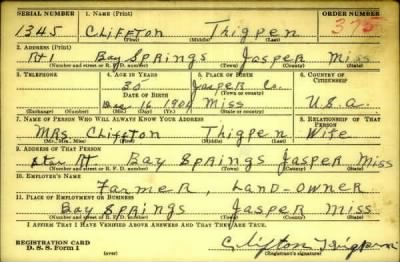 SERIAL NUMBER 1. NAME (Print) ORDER NUMBER
1345 Cliffton Thigpen 375
(First) (Middle) (Last)
2. ADDRESS (Print)
Rt 1 Bay Springs Jasper Miss
(Number and street or R. F. D. number) (Town) (County) (State)
3. TELEPHONE 4. AGE IN YEARS 5. PLACE OF BIRTH 6. COUNTRY OF CITIZENSHIP
35 Jasper Co.
DATE OF BIRTH (Town or county)
Dec 16 Miss U.S.a.
(Exchange) (Number) (Mo.) (Day) (Yr.) (State or country)
7. NAME OF PERSON WHO WILL ALWAYS KNOW YOUR ADDRESS 8. RELATIONSHIP OF THAT PERSON
Mrs Cliffton Thigpen Wife
(Mr., Mrs., Miss) (First) (Middle) (Last)
9. ADDRESS OF THAT PERSON
Rt Bay Springs Jasper Miss
(Number and street or R. F. D. number) (Town) (County) (State)
10. EMPLOYER'S NAME
Farmer, Land-owner
11. PLACE OF EMPLOYMENT OR BUSINESS
Bay Springs Jasper Miss
(Number and street or R. F. D. number) (Town) (County) (State)
I AFFIRM THAT I HAVE VERIFIED ABOVE ANSWERS AND THAT THEY ARE TRUE.
REGISTRATION CARD Clifton Thigpen
D. S. S. Form 1 (over) (Registrant's signature)